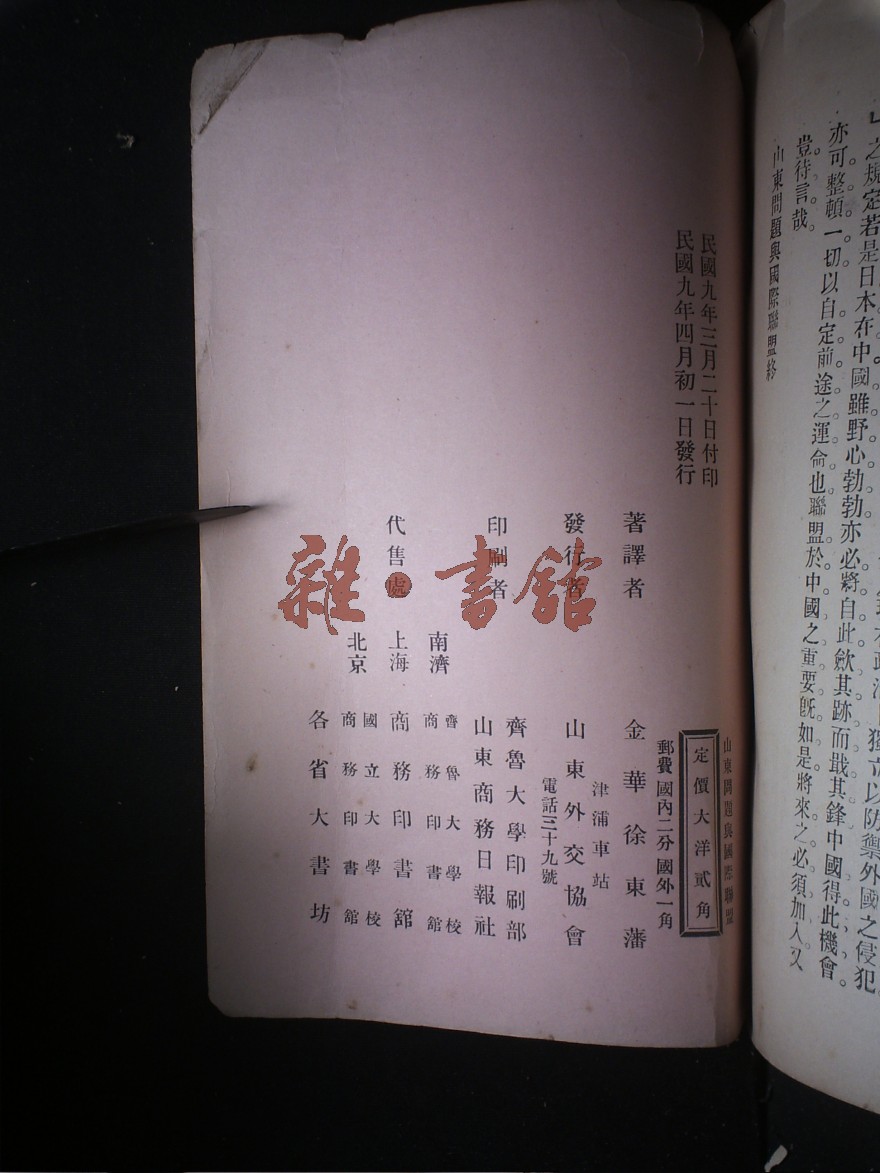 之規定若是日本在中國雖野心勃勃亦必將自此歛其跡而戢其鋒中國得此機會
亦可整頓一切以自定前途之運命也聯盟於中國之重要旣如是將來之必須加入又
豈待言哉
山東問題與國際聯盟終
民國九年三月二十日付印
民國九年四月初一日發行
山東問題與國際聯盟
定價大洋貳角
郵費 國內二分 國外一角
著譯者 金華徐東藩
津浦車站
發行者 山東外交協會
電話三十九號
印刷者 齊魯大學印刷部
山東商務日報社
代售處
濟南 齊魯大學校
商務印書館
上海 商務印書館
北京 國立大學校
商務印書館
各省大書坊
雜·書館